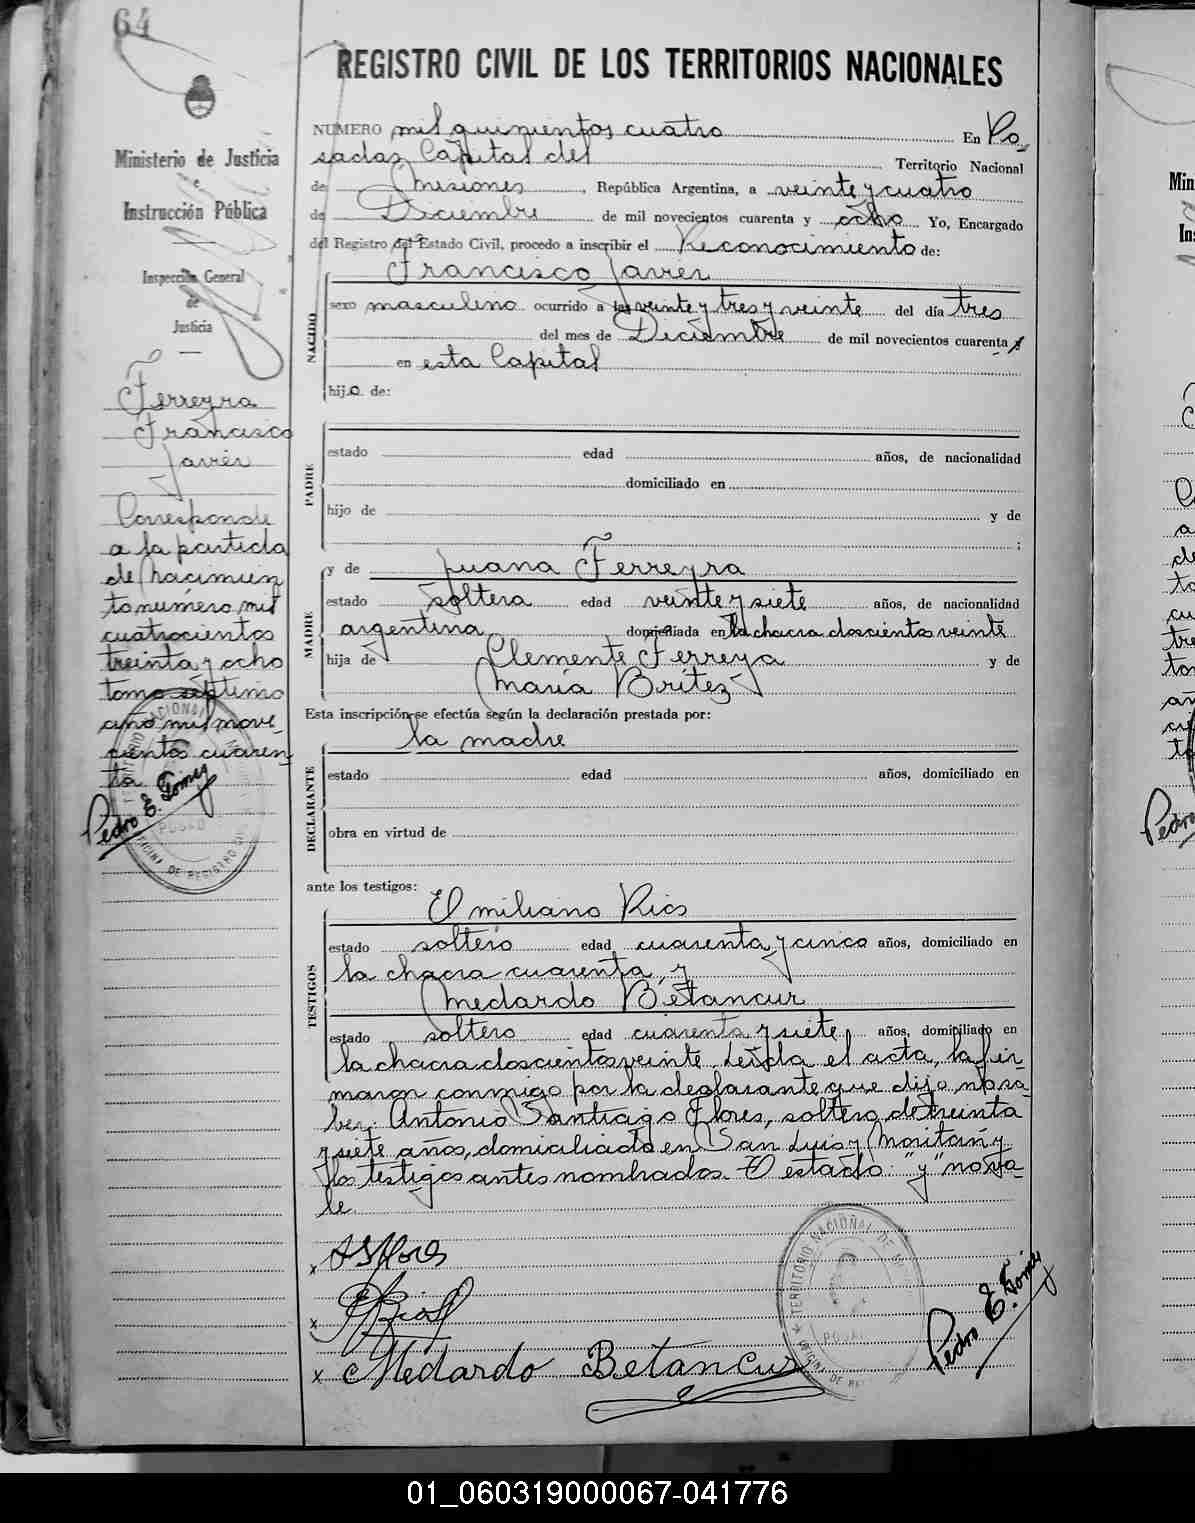 64
REGISTRO CIVIL DE LOS TERRITORIOS NACIONALES
Ministerio de Justicia
e
Instrucción Pública
Inspección General
de
Justicia
Ferreyra
Francisco
Javier
Corresponde
a la partida
de nacimien
to número mil
cuatrocientos
treinta y ocho
tomo septimo
año mil nove-
cientos cuaren
ta
Pedro E. Gómez
NUMERO mil quinientos cuatro En Po
sadas Capital del Territorio Nacional
de Misiones, República Argentina, a veinte y cuatro
de Diciembre de mil novecientos cuarenta y ocho Yo, Encargado
del Registro del Estado Civil, procedo a inscribir el Reconocimiento de:
Francisco Javier
NACIDO
sexo masculino ocurrido a las veinte y tres y veinte del día tres
del mes de Diciembre de mil novecientos cuarenta y
en esta Capital
hijo de:
PADRE
estado edad años, de nacionalidad
domiciliado en
hijo de y de
;
MADRE
y de Juana Ferreyra
estado soltera edad veinte y siete años, de nacionalidad
argentina domiciliada en la chacra doscientos veinte
hija de Clemente Ferreya y de
María Britez
Esta inscripción se efectúa según la declaración prestada por:
la madre
DECLARANTE
estado edad años, domiciliado en
obra en virtud de
ante los testigos:
TESTIGOS
Emiliano Rios
estado soltero edad cuarenta y cinco años, domiciliado en
la chacra cuarenta y
Medardo Betancur
estado soltero edad cuarenta y siete años, domiciliado en
la chacra doscientos veinte. Leída el acta, la fir-
maron conmigo por la declarante que dijo no sa-
ber: Antonio Santiago Flores, soltero, de treinta
y siete años, domiciliado en San Luis y Moritán y
los testigos antes nombrados. El estado: "y" no va-
le.
x ASFlores
x ERios
x Medardo Betancur
TERRITORIO NACIONAL DE
Pedro E. Gómez
01_060319000067-041776